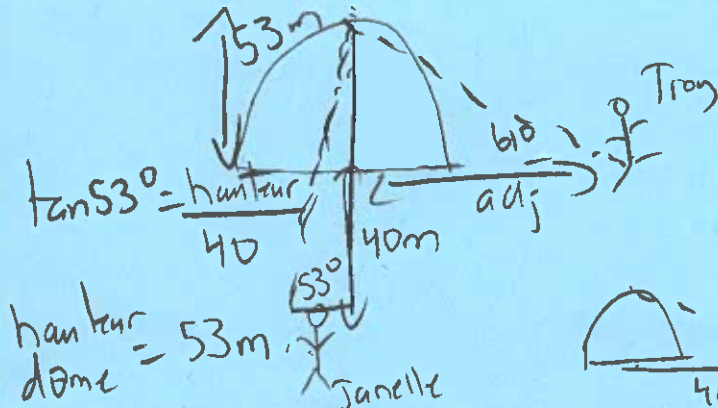 53m
Troy
61°
adj
tan53° = hauteur
40
40m
53°
hauteur
dôme = 53m
Janelle